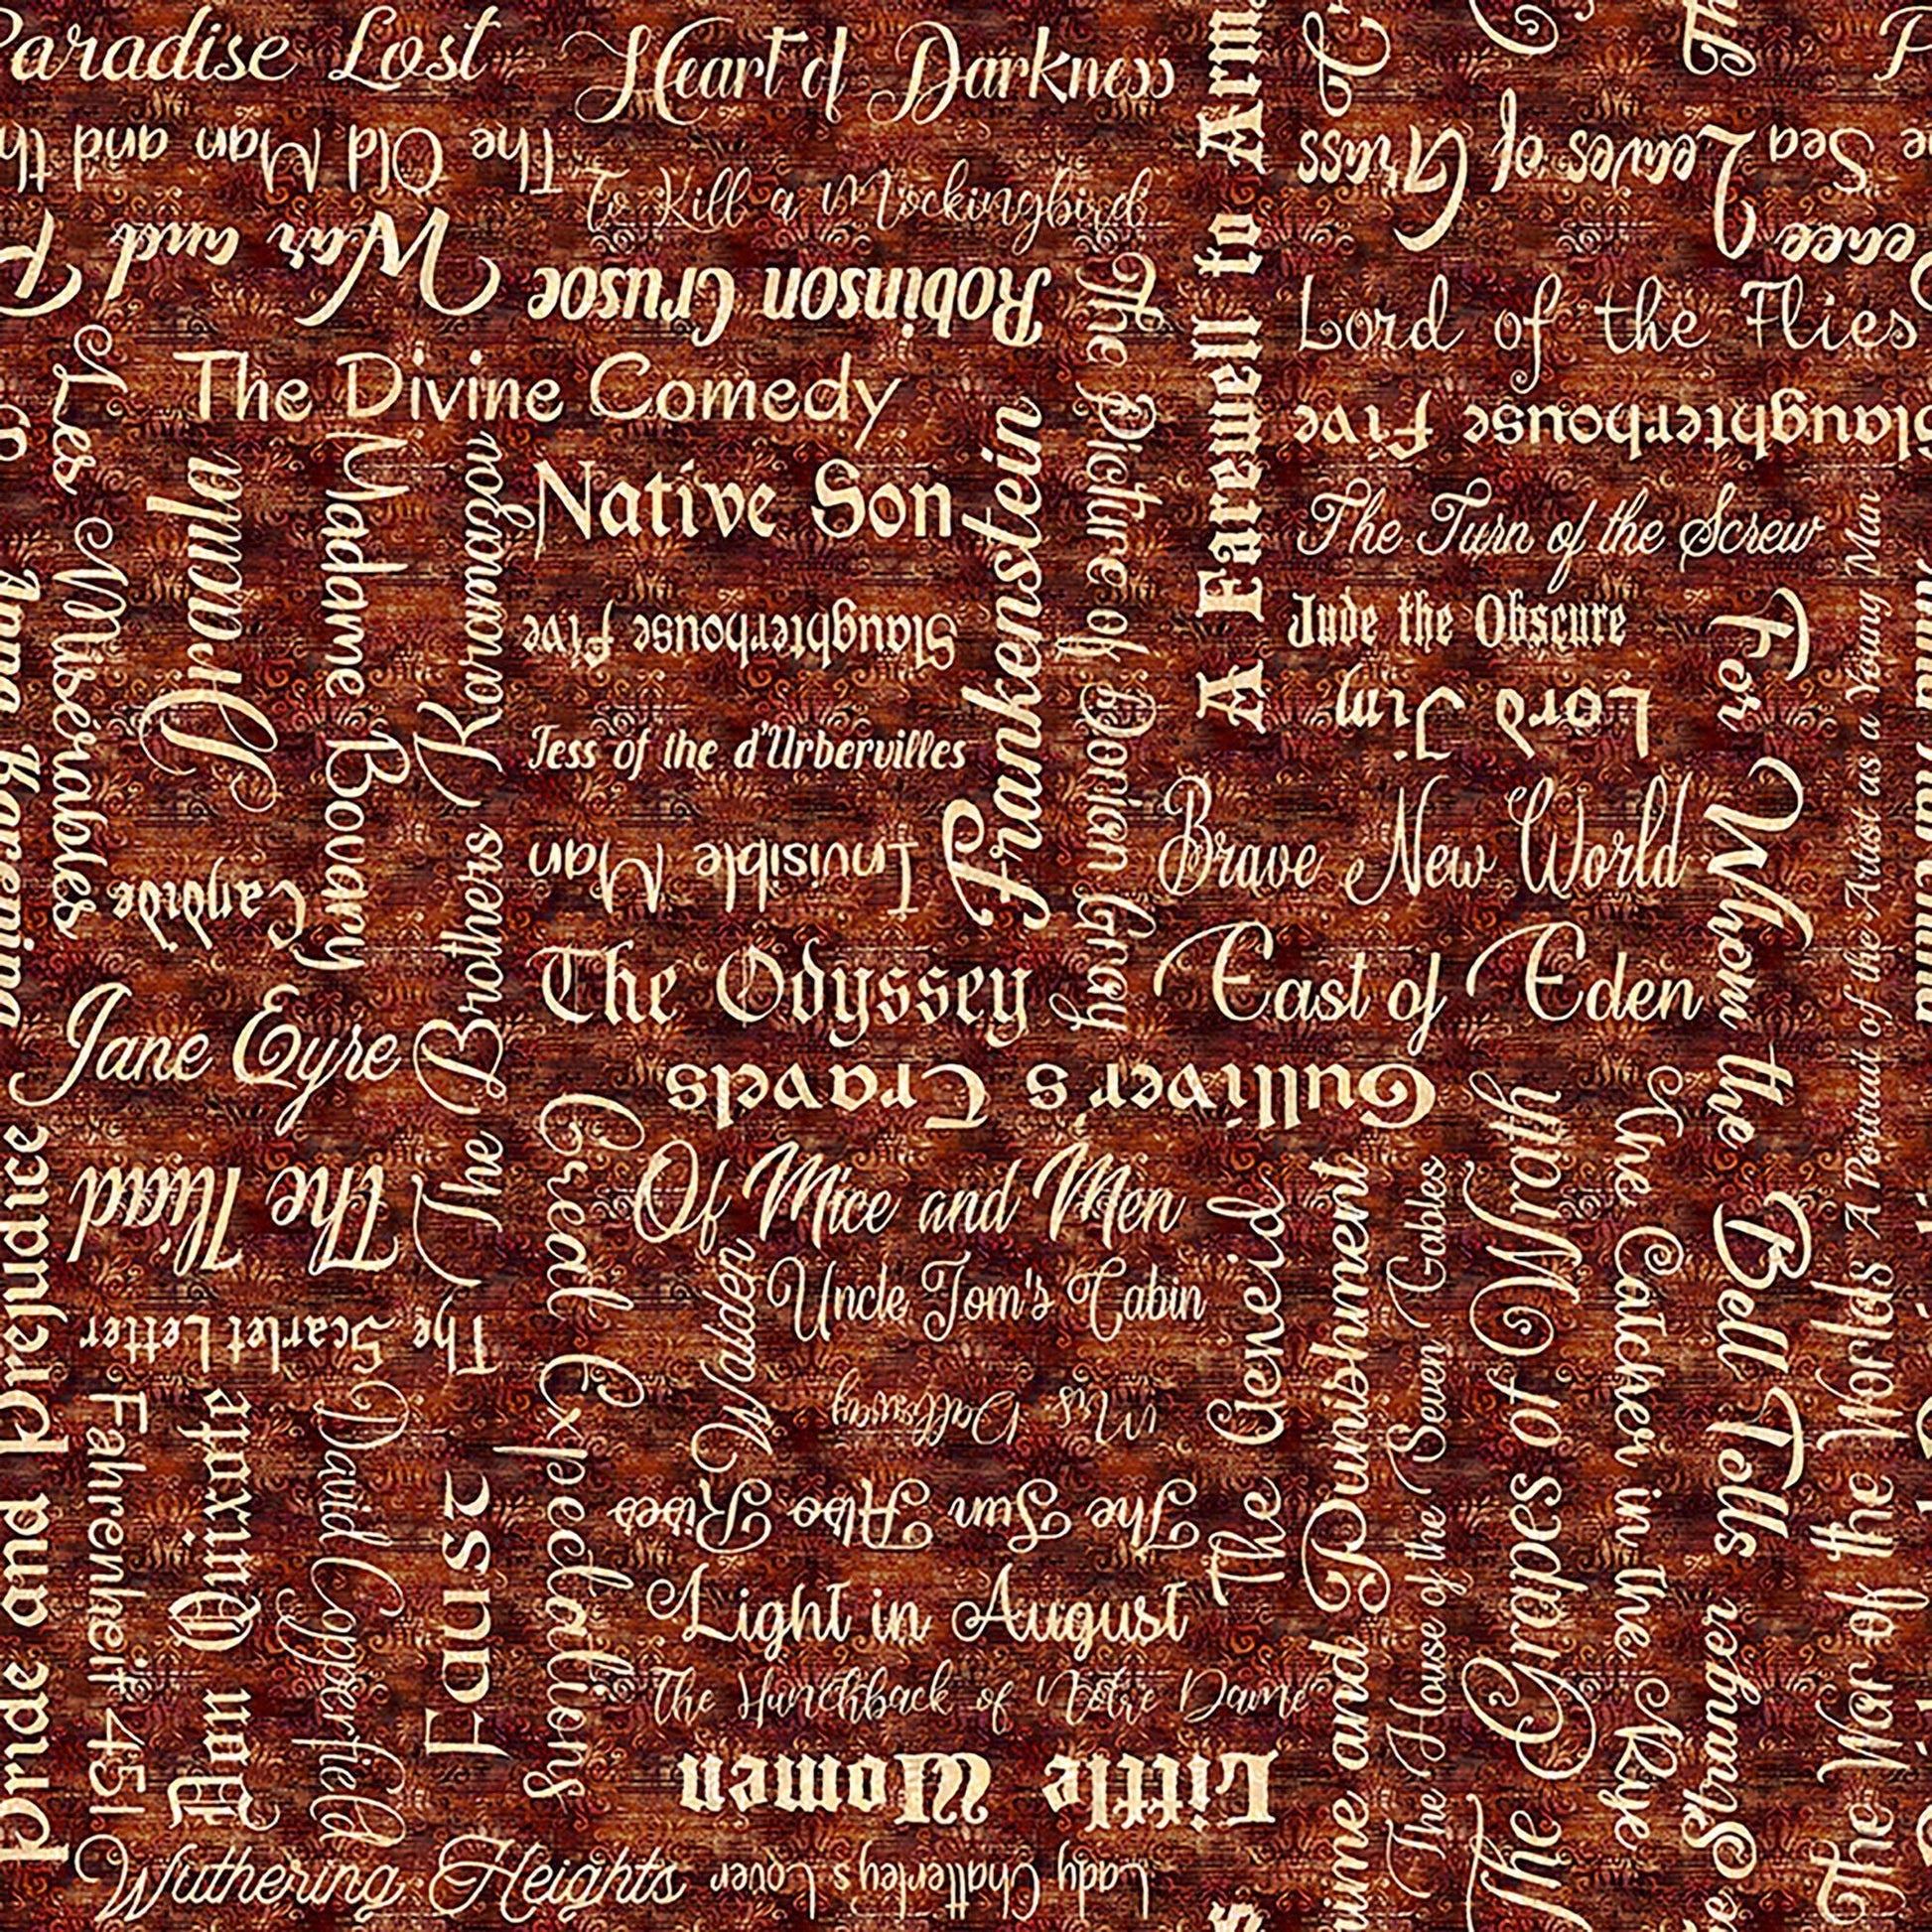 Paradise Lost
Heart of Darkness
The Old Man and th
To Kill a Mockingbird
War and P
Robinson Crusoe
A Farewell to Arm
Leaves of Grass
Sea
Peace
Lord of the Flies
Slaughterhouse Five
The Turn of the Screw
Jude the Obscure
Lord Jim
The Divine Comedy
Les Misérables
Dracula
Madame Bovary
The Brothers Karamazov
Native Son
Slaughterhouse Five
Tess of the d'Urbervilles
Invisible Man
Frankenstein
The Picture of Dorian Gray
Brave New World
East of Eden
The Odyssey
Gulliver's Travels
Candide
Jane Eyre
The Iliad
The Scarlet Letter
Anna Karenina
pride and prejudice
Fahrenheit 451
Don Quixote
David Copperfield
Faust
Great Expectations
Of Mice and Men
Uncle Tom's Cabin
Walden
Mrs Dalloway
The Sun Also Rises
Light in August
The Hunchback of Notre Dame
Little Women
Wuthering Heights
Lady Chatterley's Lover
The Aeneid
rime and Punishment
The House of the Seven Gables
The Grapes of Wrath
The Catcher in the Rye
For Whom the Bell Tolls
A Portrait of the Artist as a Young Man
The War of the Worlds
e Stranger